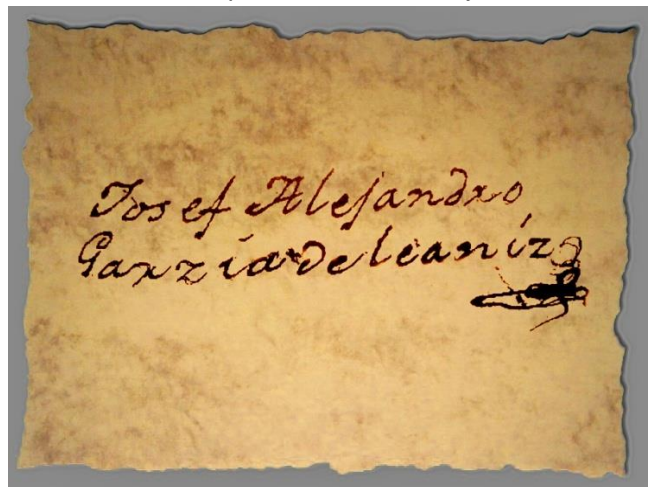 Josef Alejandro
Garzia de leaníz